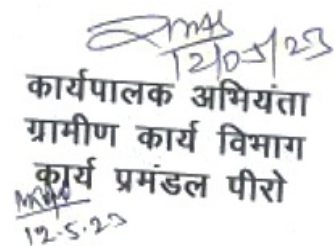 12/05/23
कार्यपालक अभियंता
ग्रामीण कार्य विभाग
कार्य प्रमंडल पीरो
12.5.23